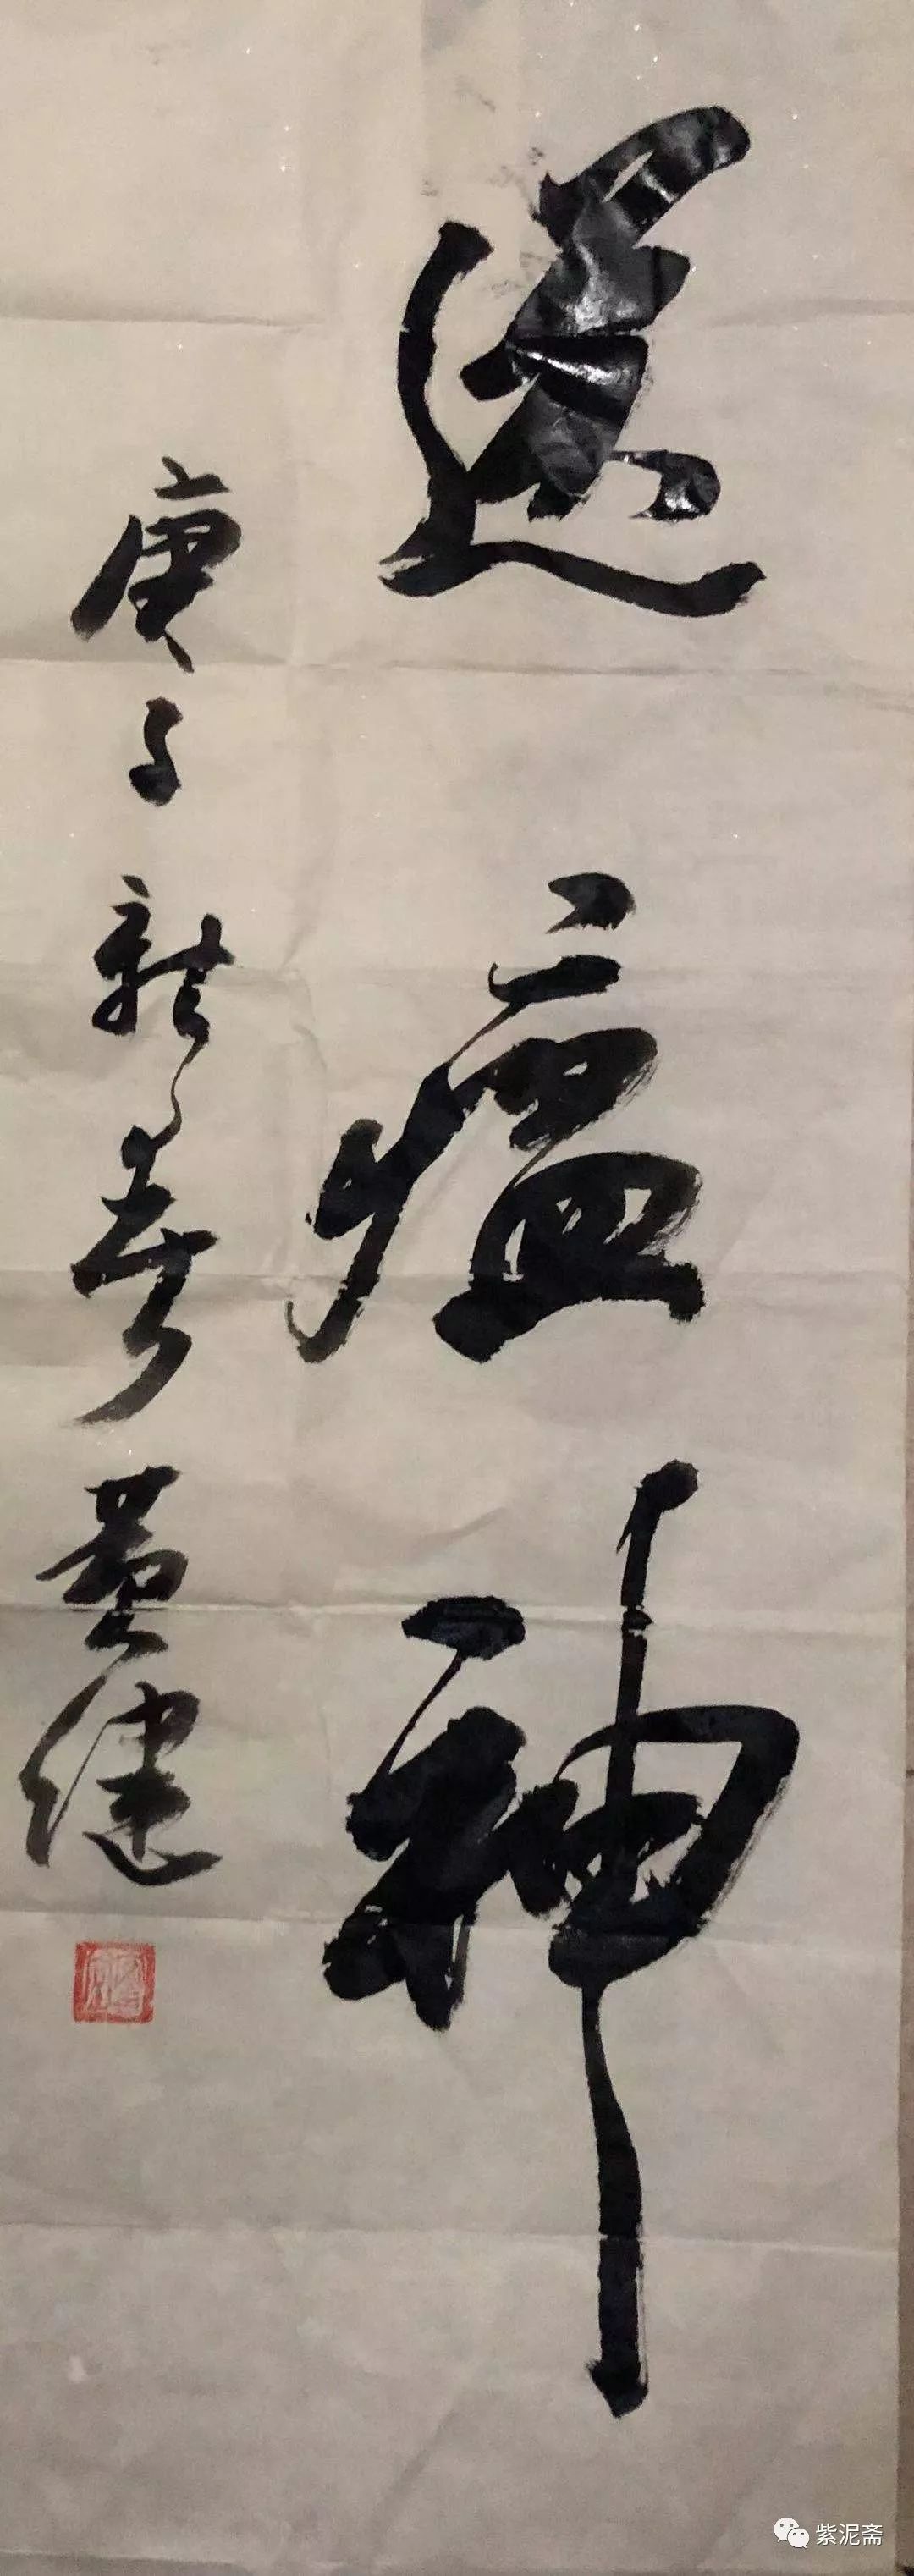 送瘟神
庚子新春 黄健
紫泥斋